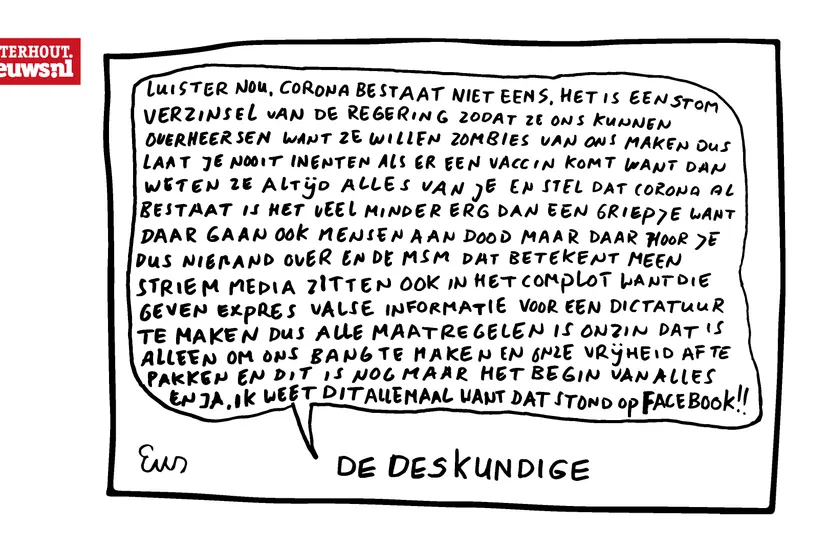 TERHOUT.
euws.nl
LUISTER NOU, CORONA BESTAAT NIET EENS, HET IS EEN STOM
VERZINSEL VAN DE REGERING ZODAT ZE ONS KUNNEN
OVERHEERSEN WANT ZE WILLEN ZOMBIES VAN ONS MAKEN DUS
LAAT JE NOOIT INENTEN ALS ER EEN VACCIN KOMT WANT DAN
WETEN ZE ALTIJD ALLES VAN JE EN STEL DAT CORONA AL
BESTAAT IS HET VEEL MINDER ERG DAN EEN GRIEPJE WANT
DAAR GAAN OOK MENSEN AAN DOOD MAAR DAAR HOOR JE
DUS NIEMAND OVER EN DE MSM DAT BETEKENT MEEN
STRIEM MEDIA ZITTEN OOK IN HET COMPLOT WANT DIE
GEVEN EXPRES VALSE INFORMATIE VOOR EEN DICTATUUR
TE MAKEN DUS ALLE MAATREGELEN IS ONZIN DAT IS
ALLEEN OM ONS BANG TE MAKEN EN ONZE VRIJHEID AF TE
PAKKEN EN DIT IS NOG MAAR HET BEGIN VAN ALLES
EN JA, IK WEET DIT ALLEMAAL WANT DAT STOND OP FACEBOOK!!
Eus
DE DESKUNDIGE